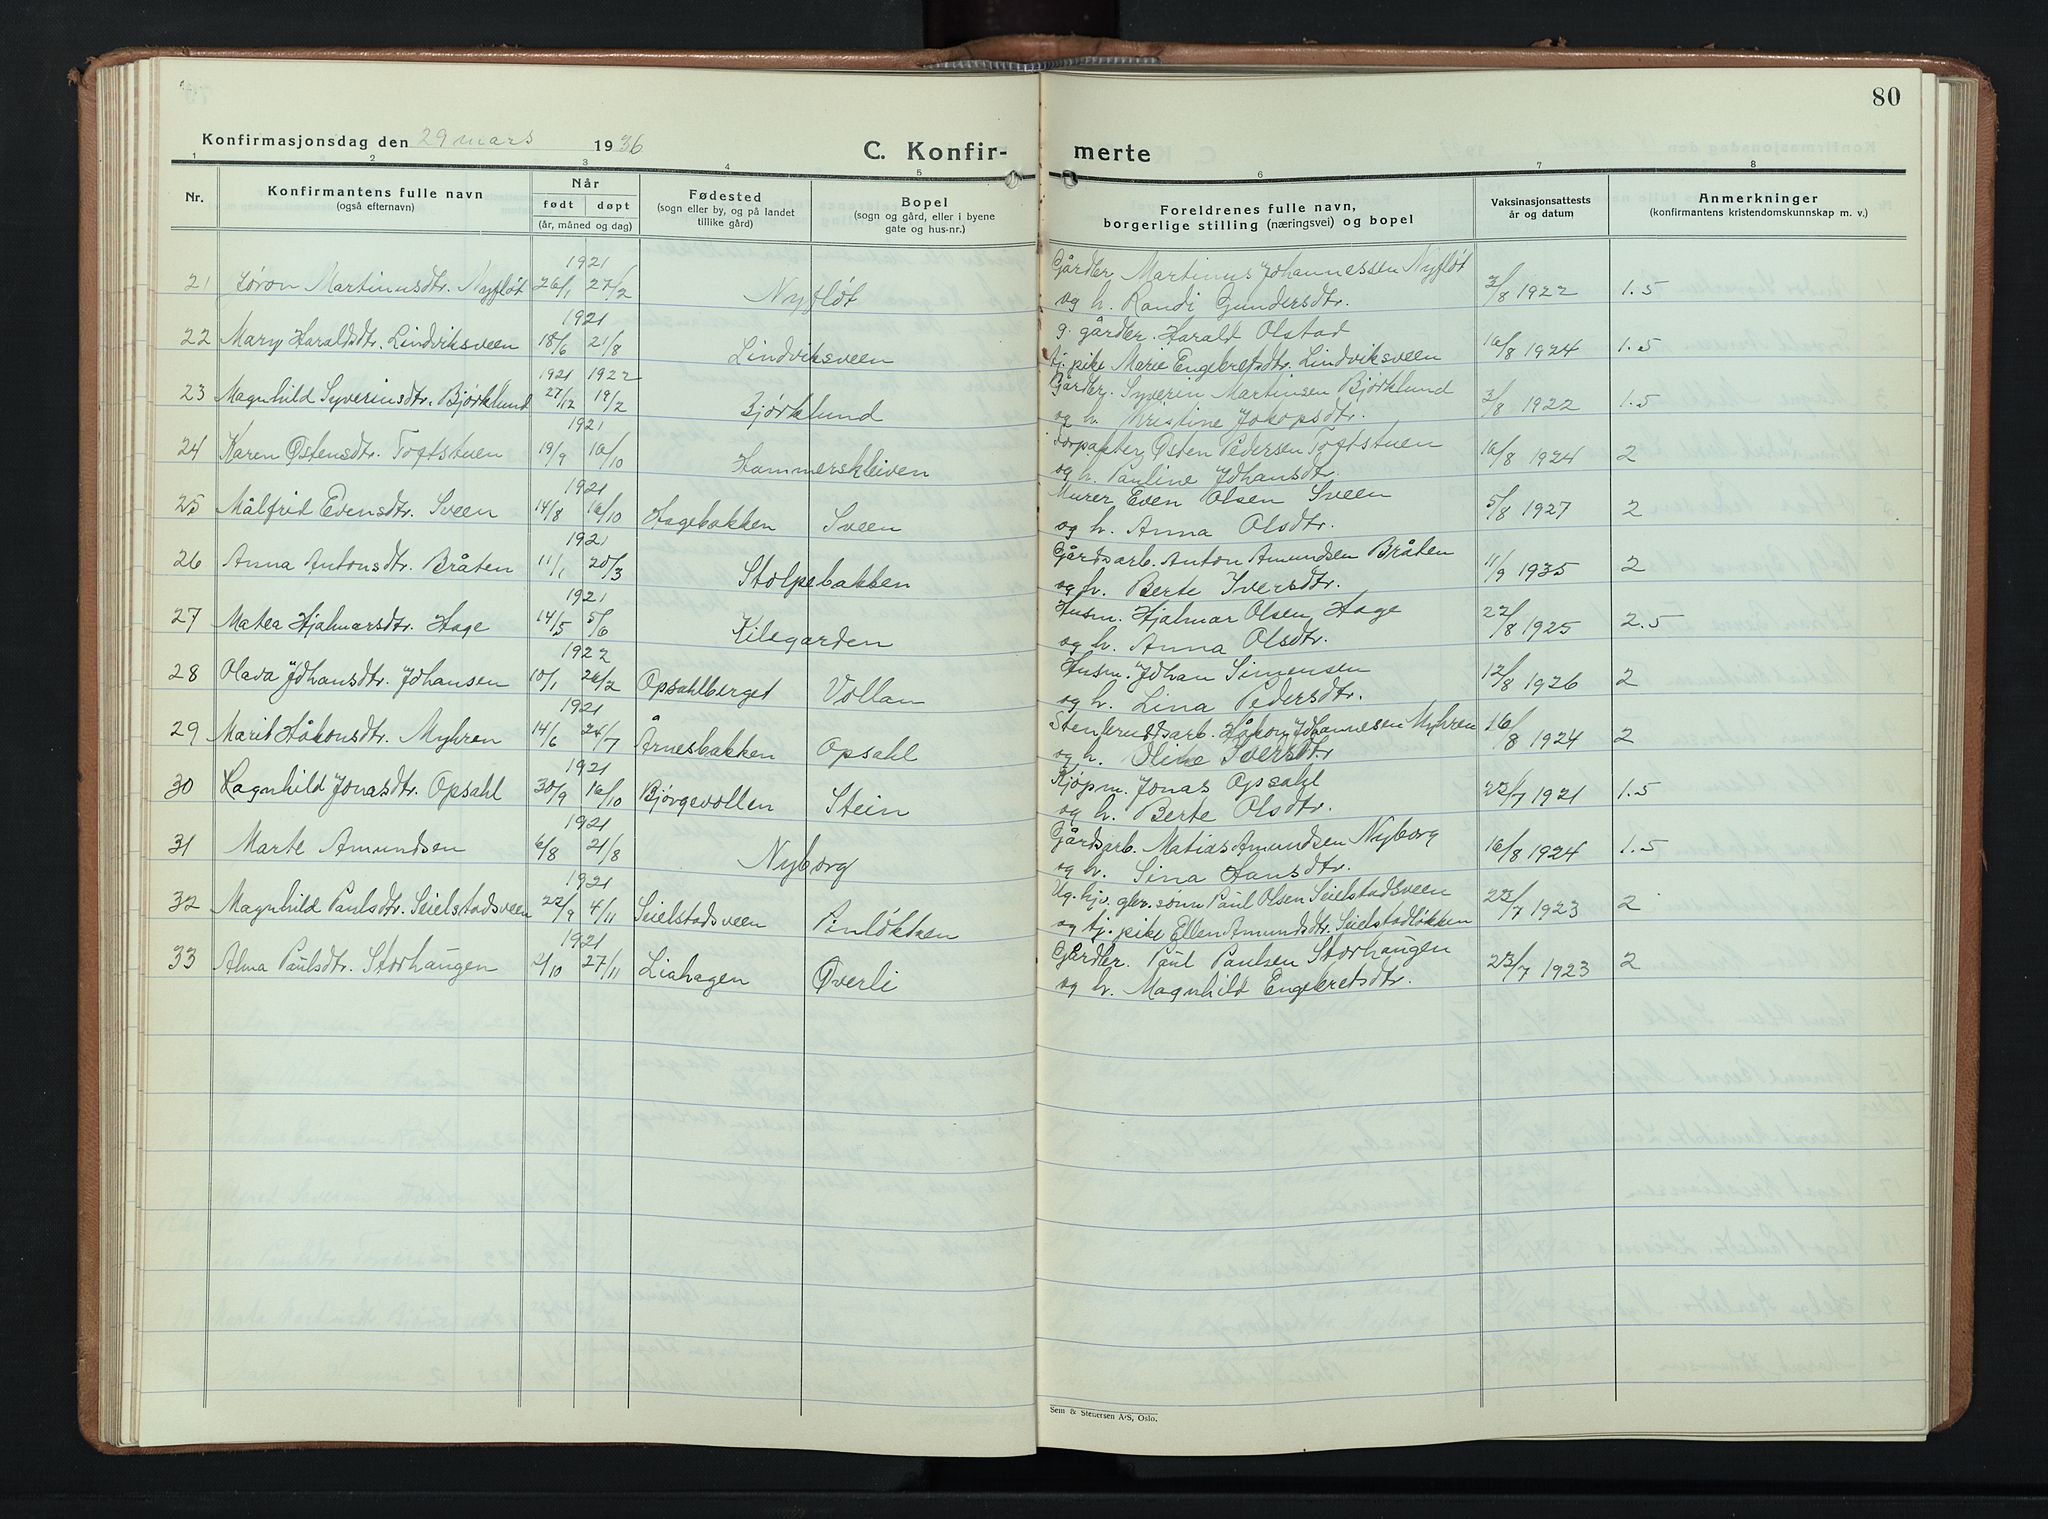 80
Konfirmasjonsdag den 29 mars 1936
C. Konfir- merte
1 2 3 4 5 6 7 8
Nr.
Konfirmantens fulle navn
(også efternavn)
Når
født døpt
(år, måned og dag)
Fødested
(sogn eller by, og på landet
tillike gård)
Bopel
(sogn og gård, eller i byene
gate og hus-nr.)
Foreldrenes fulle navn,
borgerlige stilling (næringsvei) og bopel
Vaksinasjonsattests
år og datum
Anmerkninger
(konfirmantens kristendomskunnskap m. v.)
1921 Gårdbr. Martinus Johannessen Nyfløt
21 Jøron Martinusdtr. Nyfløt 26/1 27/2 Nyfløt og h. Randi Gundersdtr. 3/8 1922 1.5
1921 g. gårdbr. Harald Olstad
22 Mary Haraldsdtr. Lindviksveen 18/6 21/8 Lindviksveen tj. pike Marie Engebretsdtr. Lindviksveen 16/8 1924 1.5
1921 1922 Gårdbr. Syverin Martinsen Bjørklund
23 Magnhild Syverinsdtr. Bjørklund 27/12 19/2 Bjørklund og h. Kristine Jakopsdtr. 3/8 1922 1.5
1921 Forpakter Østen Pedersen Toftstuen
24 Karen Østensdtr. Toftstuen 19/9 16/10 Hammerskleiven og h. Pauline Johansdtr. 16/8 1924 2
1921 Murer Even Olsen Sveen
25 Målfrid Evensdtr. Sveen 14/8 16/10 Hagebakken Sveen og h. Anna Olsdtr. 5/8 1927 2
1921 Gårdsarb. Anton Amundsen Bråten
26 Anna Antonsdtr. Bråten 11/1 20/3 Stolpebakken og h. Berte Iversdtr. 11/9 1935 2
1921 Husm. Hjalmar Olsen Hage
27 Matea Hjalmarsdtr. Hage 14/5 5/6 Kilegarden og h. Anna Olsdtr. 22/8 1925 2.5
1922 Husm. Johan Simensen
28 Olava Johansdtr. Johansen 10/1 26/2 Opsahlberget Vollan og h. Lina Pedersdtr. 12/8 1926 2
1921 Stenbruddsarb. Håkon Johannesen Myhren
29 Marit Håkonsdtr. Myhren 14/6 24/7 Årnesbakken Opsahl og h. Oline Iversdtr. 16/8 1924 2
1921 Kjøpm. Jonas Opsahl
30 Ragnhild Jonasdtr. Opsahl 30/9 16/10 Bjørgevollen Stein og h. Berte Olsdtr. 22/7 1921 1.5
1921 Gårdsarb. Matias Amundsen Nyborg
31 Marte Amundsen 6/8 21/8 Nyborg og h. Sina Hansdtr. 16/8 1924 1.5
1921 Ug. hjv. gbr. sønn Paul Olsen Seielstadsveen
32 Magnhild Paulsdtr. Seielstadsveen 22/9 4/11 Seielstadsveen og tj. pike Ellen Amundsdtr. Seielstadløkken 23/7 1923 2
1921 Gårdbr. Paul Paulsen Storhaugen
33 Alma Paulsdtr. Storhaugen 2/10 27/11 Liahagen Øverli og h. Magnhild Engebretsdtr. 23/7 1923 2
Sem & Stenersen A/S, Oslo.